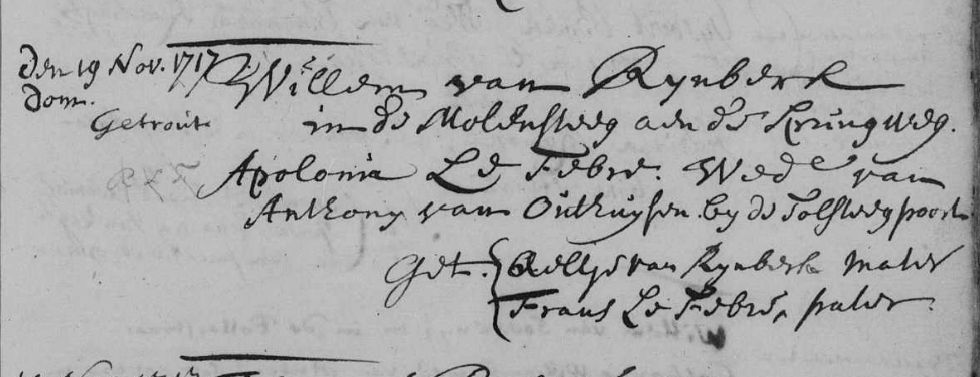 den 19 Nov. 1717 Willem van Rynberk
dom.
Getrout in de Molensteeg aen de Springweg.
Apolonia Le Febre. Wede van
Anthony van Outhuysen by de Tolsteegpoort
Get. Aeltje van Rynberk mater
Frans Le Febre, pater.